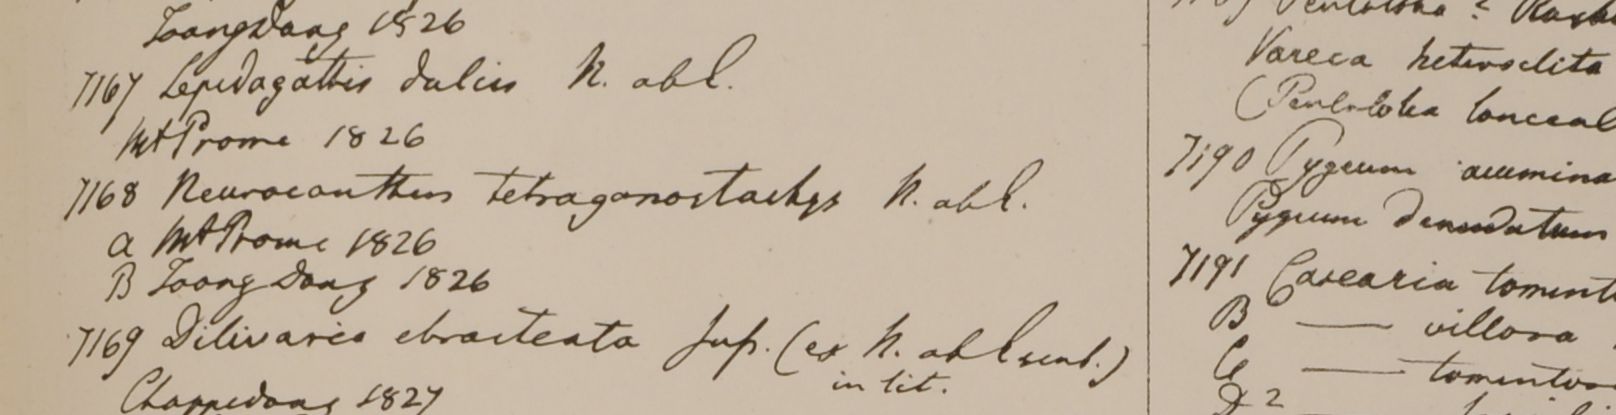 ToongDong 1826
7167 Lepidagathis dulcis N. ab E.
Mt Prome 1826
7168 Neuracanthus tetragonostachys N. ab E.
a Mt Prome 1826
B Toong Dong 1826
7169 Dilivaria ebracteata Sup. (ex N. ab E
in lit.
Chappedong 1827
Vareca heteroclita
(Pentaloba lanceol
7190 Pygeum acumina
Pygeum
7191 Casearia toment
B — villosa
C — tomentos
D 2